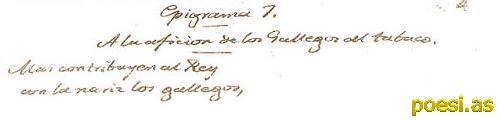 Epigrama 7.
A la aficion de los Gallegos al tabaco.
Mas contribuyen al Rey
con la nariz los gallegos,
poesi.as